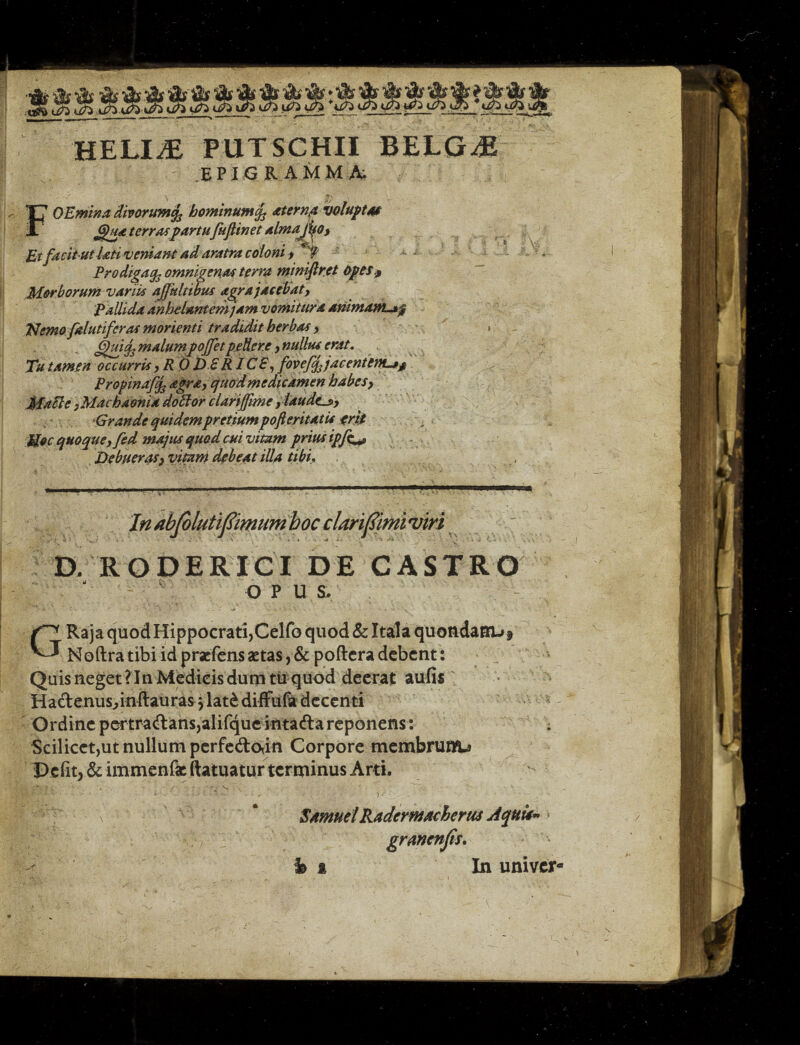 HELIÆ PUTSCHII BELGÆ
EPIGRAMMA.
FOEmina divorumq́; hominumq́; æterna voluptas
Quæ terras partu ſuſtinet alma ſuo,
Et facit ut læti veniant ad aratra coloni,
Prodigaq́; omnigenas terra miniſtret opes,
Morborum variis aſſultibus ægra jacebat,
Pallida anhelantem jam vomitura animam,
Nemo ſalutiferas morienti tradidit herbas,
Quiq́; malum poſſet pellere, nullus erat.
Tu tamen occurris, RODERICE, foveſq́; jacentem,
Propinaſq́; ægræ, quod medicamen habes,
Macte, Machaoniâ doctor clariſſime, laude,
Grande quidem pretium poſteritatis erit
Hoc quoque, ſed majus quod cui vitam prius ipſe
Debueras, vitam debeat illa tibi.
In abſolutiſſimum hoc clariſſimi viri
D. RODERICI DE CASTRO
OPUS.
GRaja quod Hippocrati, Celſo quod & Itala quondam,
Noſtra tibi id præſens ætas, & poſtera debent:
Quis neget? In Medicis dum tu quod deerat auſis
Hactenus, inſtauras; latè diffuſa decenti
Ordine pertractans, aliſque intacta reponens:
Scilicet, ut nullum perfecto in Corpore membrum
Deſit, & immenſæ ſtatuatur terminus Arti.
Samuel Radermacherus Aquis-
granenſis.
b 2 In univer-